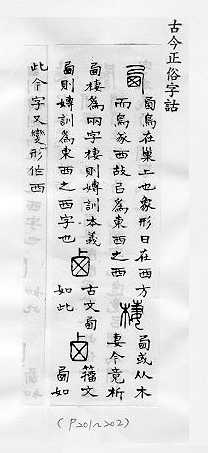 古今正俗字詁
卥鳥在巢上也象形日在西方
而鳥西故㠯為東西之西
卥或从木
妻今竟析
卥棲為兩字棲則嫥訓本義
卥則嫥訓為東西之西字也
古文卥
如此
籀文
卥如
此今字又變形作西
(P201~202)